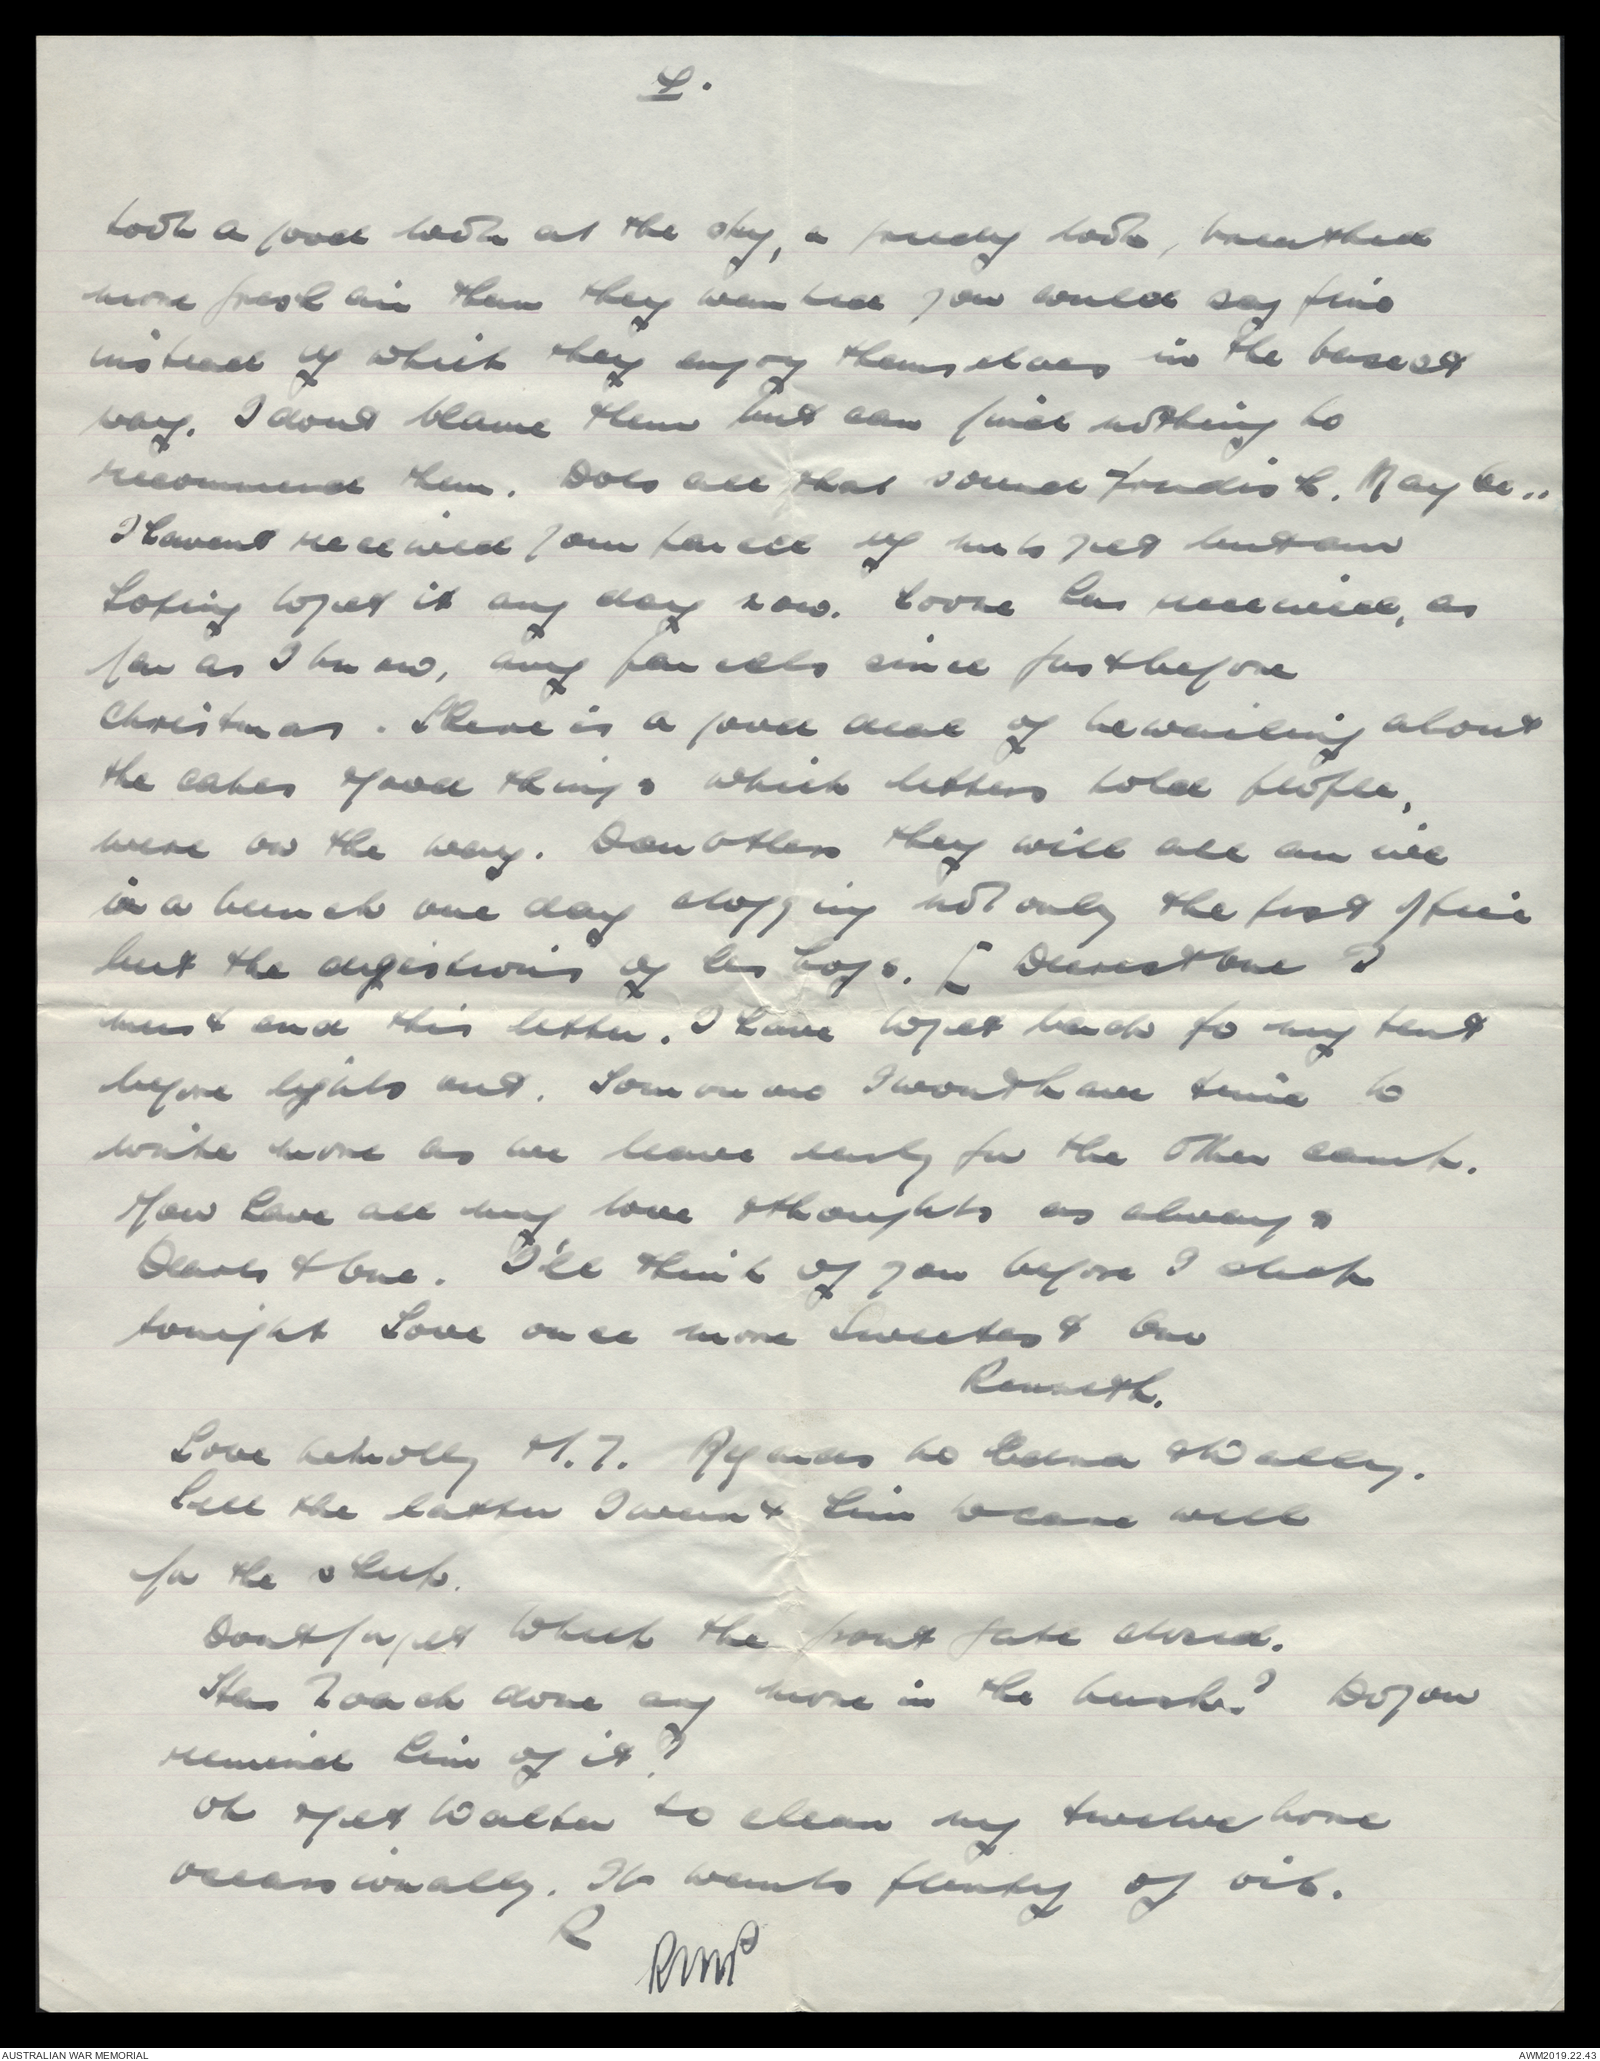 4.
took a good look at the sky, a greedy look, breathed
more fresh air than they wanted you would say fine
instead of which they enjoy themselves in the basest
way. I dont blame them but can find nothing to
recommend them. Does all that sound priggish. Maybe..
I havent received your parcel of nuts yet but am
hoping to get it any day now. Noone has received, as
far as I know, any parcels since just before
Christmas. There is a good deal of bewailing about
the cakes & good things which letters told people,
were on the way. Doubtless they will all arrive
in a bunch one day clogging not only the post office
but the digestions of his boys. [ Dearest one I
must end this letter. I have to get back to my tent
before lights out. Tomorrow I wont have time to
write more as we leave early for the other camp.
You have all my love & thoughts as always
Dearest one. I'll think of you before I sleep
tonight Love once more Sweetest one
Kenneth.
Love to Molly M.T. Regards to Edna & Wally.
Tell the latter I want him to care well
for the sheep.
Dont forget to keep the front gate closed.
Has Zoach done any more in the bush? Do you
remind him of it?
Oh & get Walter to clean my twelve bore
occassionally. It wants plenty of oil.
K